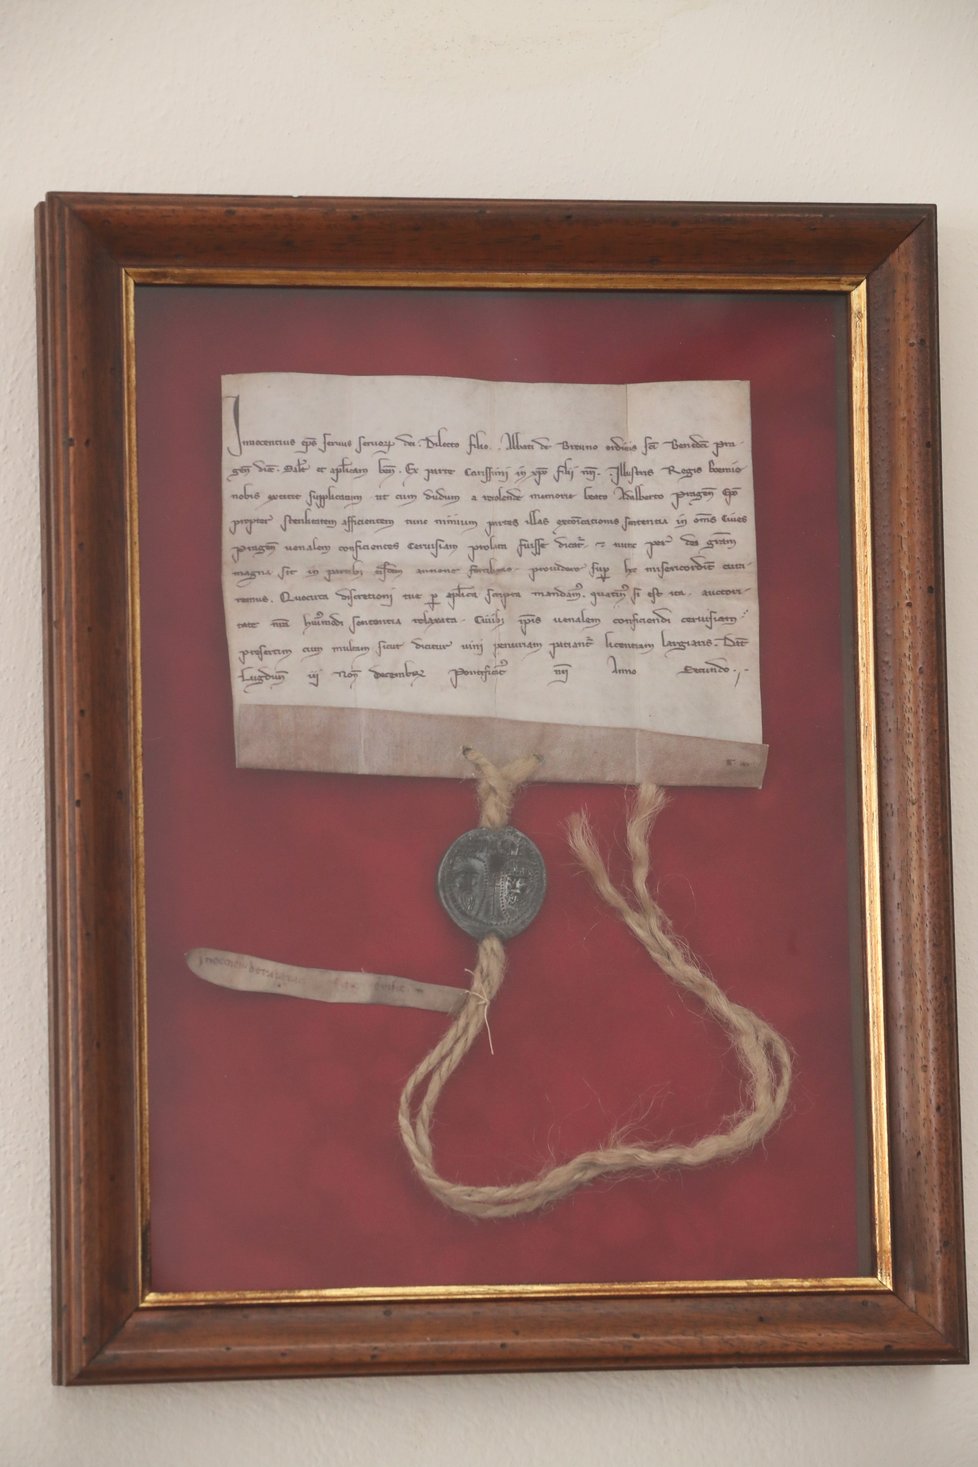 Innocentius eps servus servorum dei. Dilecto filio. Abbati de Breuno ordinis sci Benedci Pra-
gen dioc. Salt et aplicam ben. Ex parte Carissimi in xpo filii nri. Illustris Regis Boemie
nobis extitit supplicatum ut cum dudum a recolende memorie beato Adalberto Pragen Epo
propter sterilitatem afficientem tunc nimium partes illas excoicationis sententia in oms Cives
Pragen venalem conficientes Cervisiam prolata fuisse dicat et nunc per dei gram
magna sit in partibus eisdem annone fertilitas providere super hoc misericordit cura-
remus. Quocirca discretioni tue p aplica scripta mandam. quatin si est ita. auctori-
tate nra humodi sententia relaxata. Civibus ipsis venalem conficiendi cervisiam
presertim cum multam sicut dicitur vini penuriam patiant licentiam largiaris. Dat
Lugdun iij Non Decembr Pontificat nri Anno Secundo.